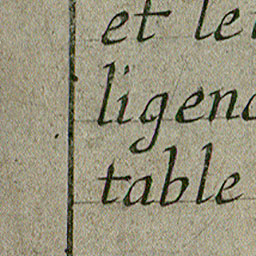 et le
ligen
table